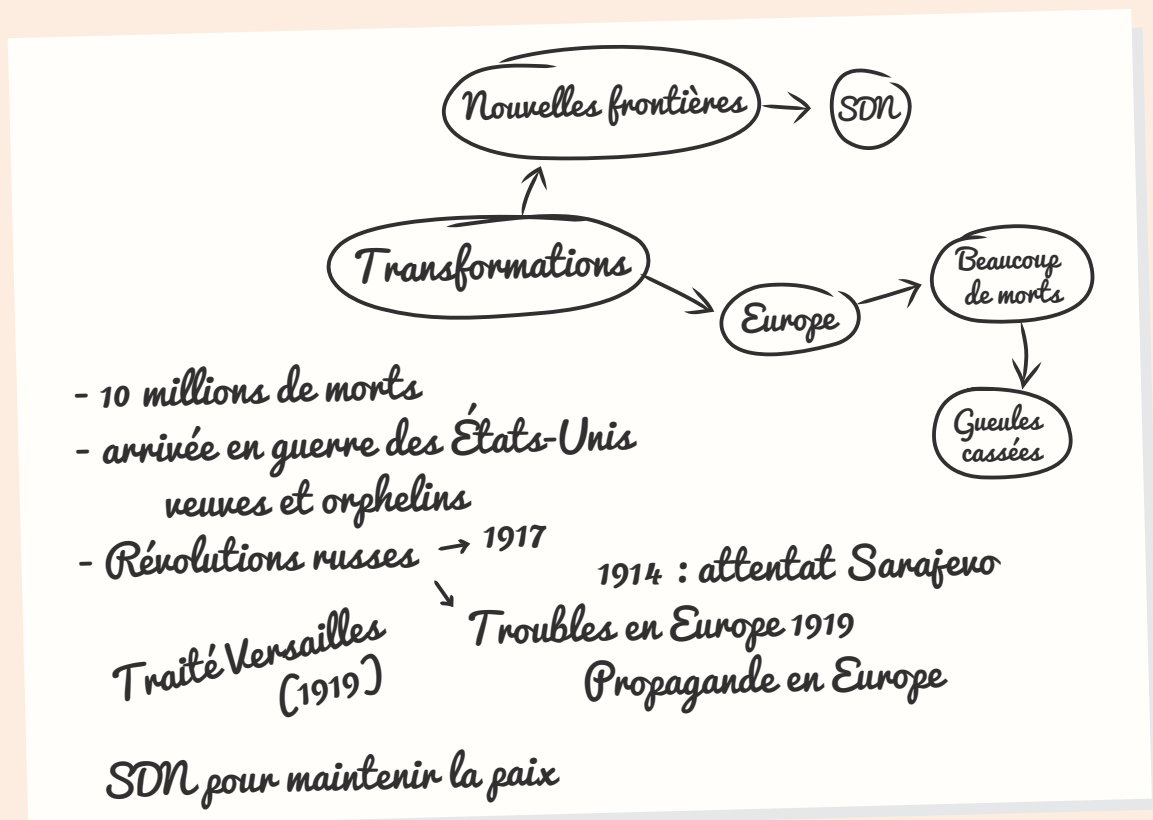 Nouvelles frontières
SDN
Transformations
Europe
Beaucoup
de morts
Gueules
cassées
- 10 millions de morts
- arrivée en guerre des États-Unis
veuves et orphelins
- Révolutions russes → 1917
1914 : attentat Sarajevo
Troubles en Europe 1919
Traité Versailles
(1919)
Propagande en Europe
SDN pour maintenir la paix